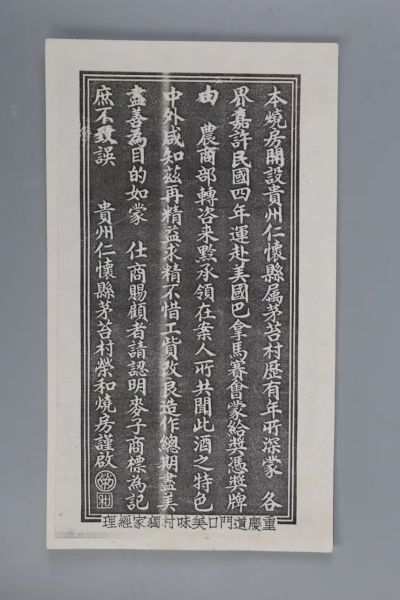 本燒房開設貴州仁懷縣属茅苔村歷有年所深蒙 各
界嘉許民國四年運赴美國巴拿馬賽會蒙給獎憑獎牌
由 農商部轉咨来黔承領在案人所共聞此酒之特色
中外咸知茲再精益求精不惜工貲改良造作總期盡美
盡善為目的如蒙 仕商賜顧者請認明麥子商標為記
庶不致誤 貴州仁懷縣茅苔村榮和燒房謹啟
榮和
理經家獨村味美口門道慶重